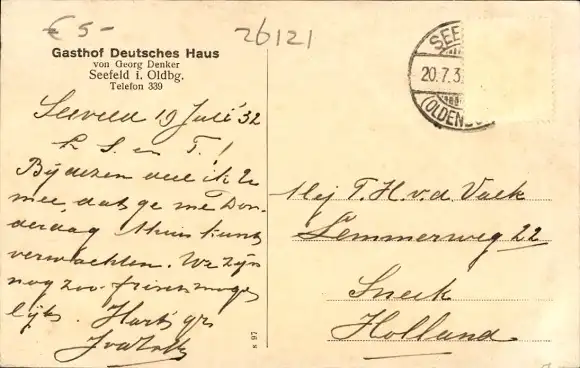 € 5-
26121
Gasthof Deutsches Haus
von Georg Denker
Seefeld i. Oldbg.
Telefon 339
SEE
20.7.3
(OLDENB
Seeveld 19 Juli 32
L S. en T. !
Bij dezen deel ik U
mee, dat ge me Don-
derdag thuis kunt
verwachten. We zijn
nog zoo frisch moge
lijk. Hart. grs
Mej T. H. v. d. Valk
Lemmerweg 22
Sneek
Holland
s 97